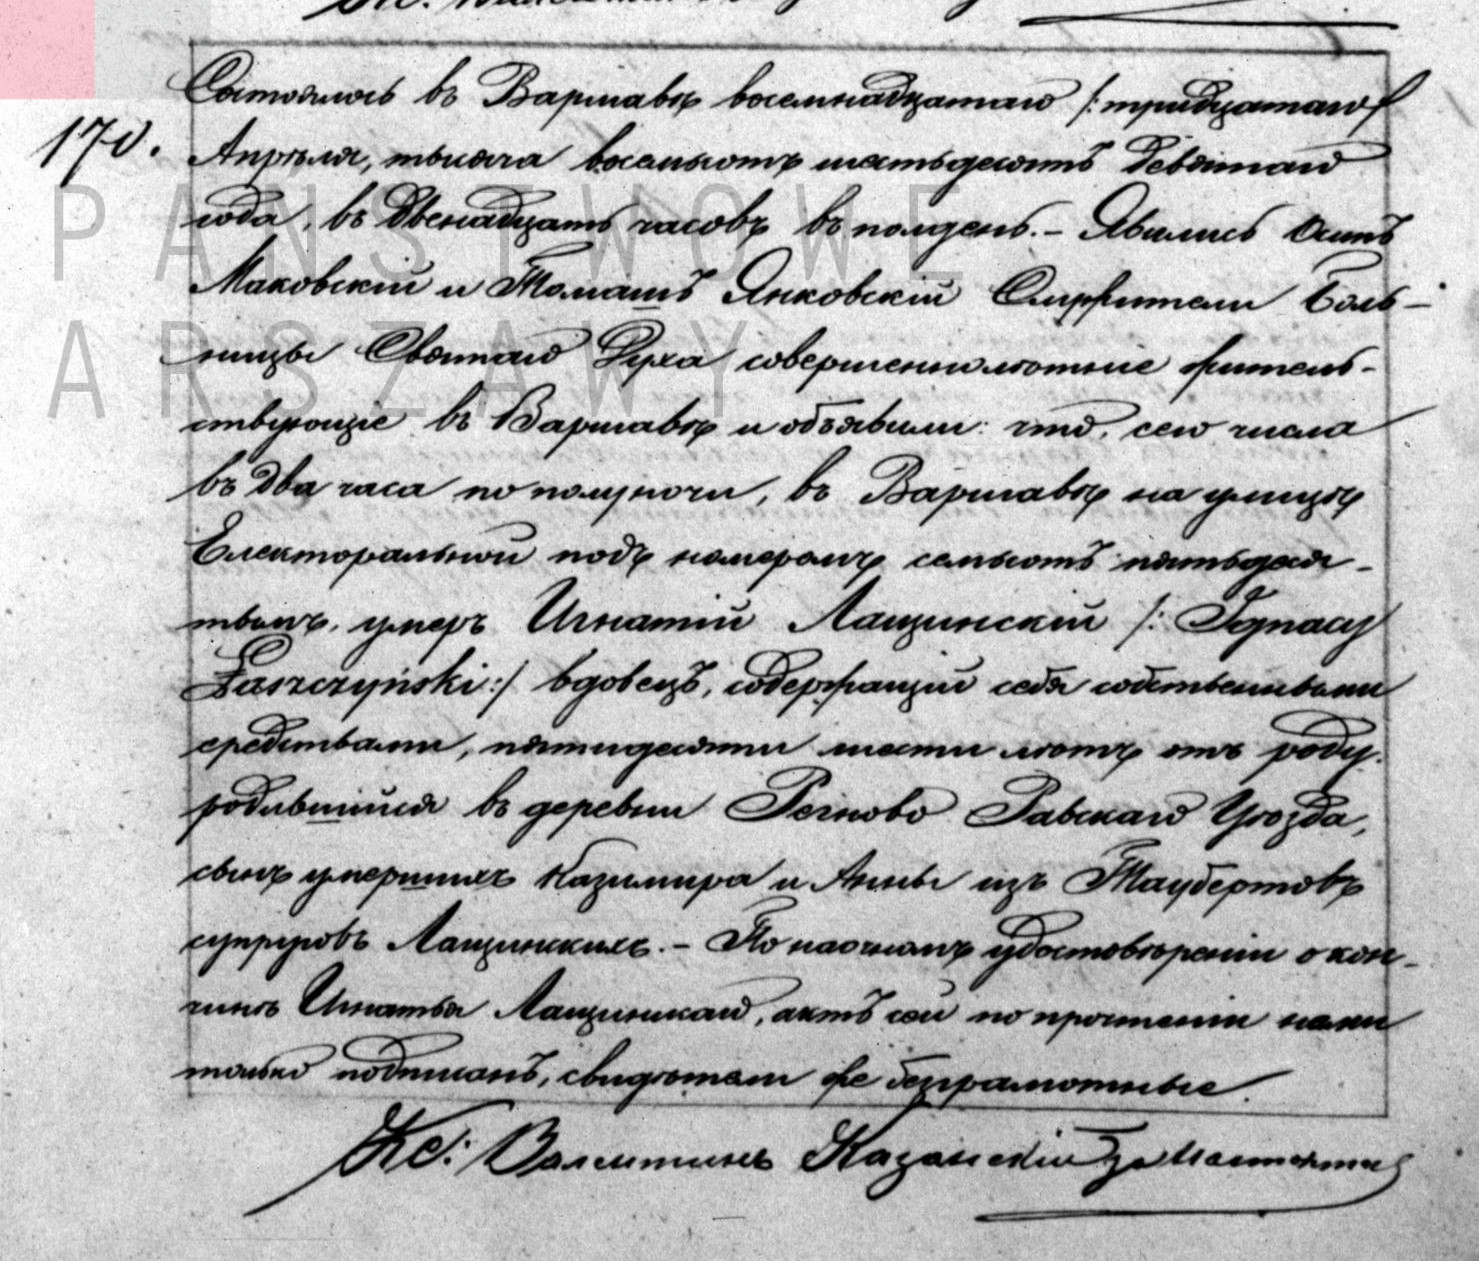 170.
Состоялось въ Варшавѣ восемнадцатаго /:тридцатаго/
Апрѣля, тысяча восемьсотъ шестьдесятъ девятаго
года, въ двенадцать часовъ въ полдень. – Явились Осипъ
PAŃSTWOWE
Маковскій и Томашъ Янковскій Служители Боль-
ницы Святаго Духа совершеннолѣтніе житель-
ARSZAWY
ствующіе въ Варшавѣ и объявили: что, сего числа
въ два часа по полуночи, въ Варшавѣ на улицѣ
Електоральной подъ номеромъ семьсотъ пятьдеся-
тымъ, умеръ Игнатій Лащинскій /: Ignacy
Łaszczyński :/ вдовецъ, содержащій себя собственными
средствами, пятидесяти шести лѣтъ отъ роду,
родившійся въ деревни Регново Равскаго Уѣзда,
сынъ умершихъ Казимира и Анны изъ Таубертовъ
супруговъ Лащинскихъ. – По наочномъ удостовѣреніи о кон-
чинѣ Игнатья Лащинскаго, актъ сей по прочтеніи нами
только подписанъ, свидѣтели же безграмотные.
Кс: Валентинъ Казанскій за Настоятеля